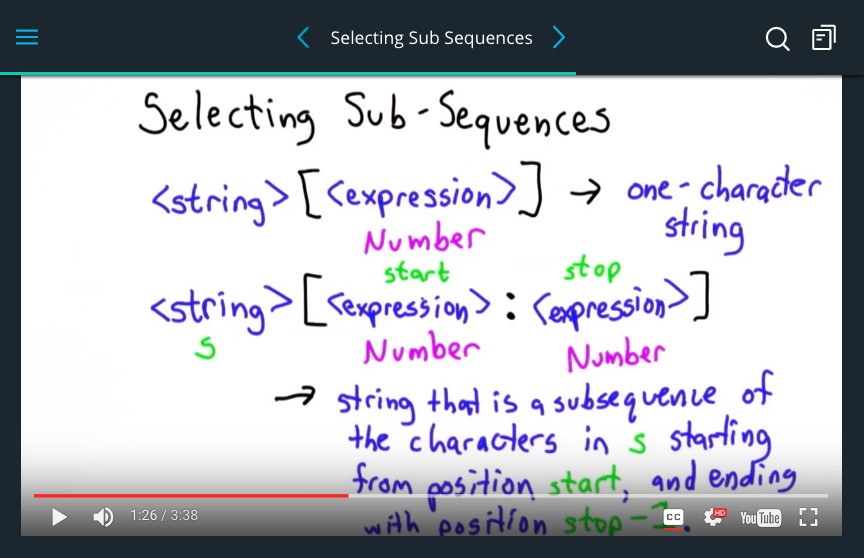 Selecting Sub Sequences
Selecting Sub-Sequences
<string>[<expression>] → one-character string
Number
start stop
<string>[<expression>:<expression>]
s Number Number
→ string that is a subsequence of
the characters in s starting
from position start, and ending
with position stop-1.
1:26 / 3:38 CC HD YouTube